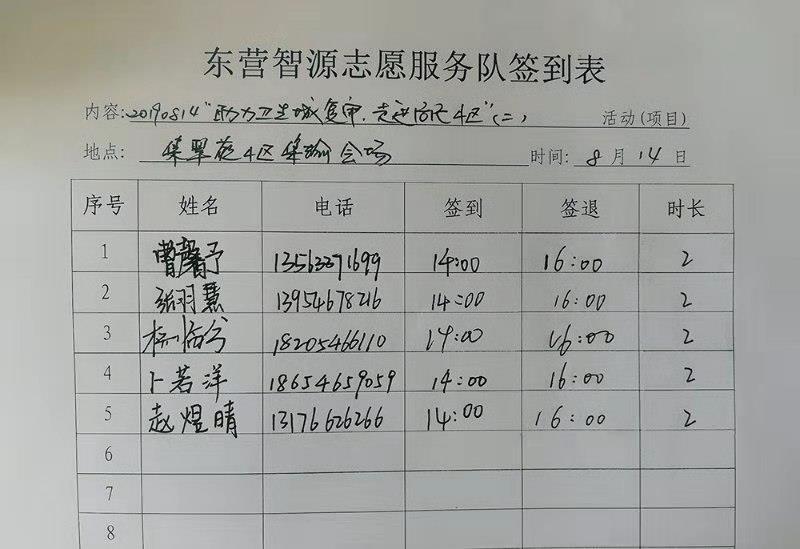 东营智源志愿服务队签到表
内容: 20190814“助力卫生城复审,走进居民4区”(二) 活动(项目)
地点: 集翠花4区集瑜会场 时间: 8月14日
序号 姓名 电话 签到 签退 时长
1 曹馨予 13563371699 14:00 16:00 2
2 张羽慧 13954678216 14:00 16:00 2
3 18205466110 14:00 16:00 2
4 卜若洋 18654659059 14:00 16:00 2
5 赵煜晴 13176626266 14:00 16:00 2
6
7
8